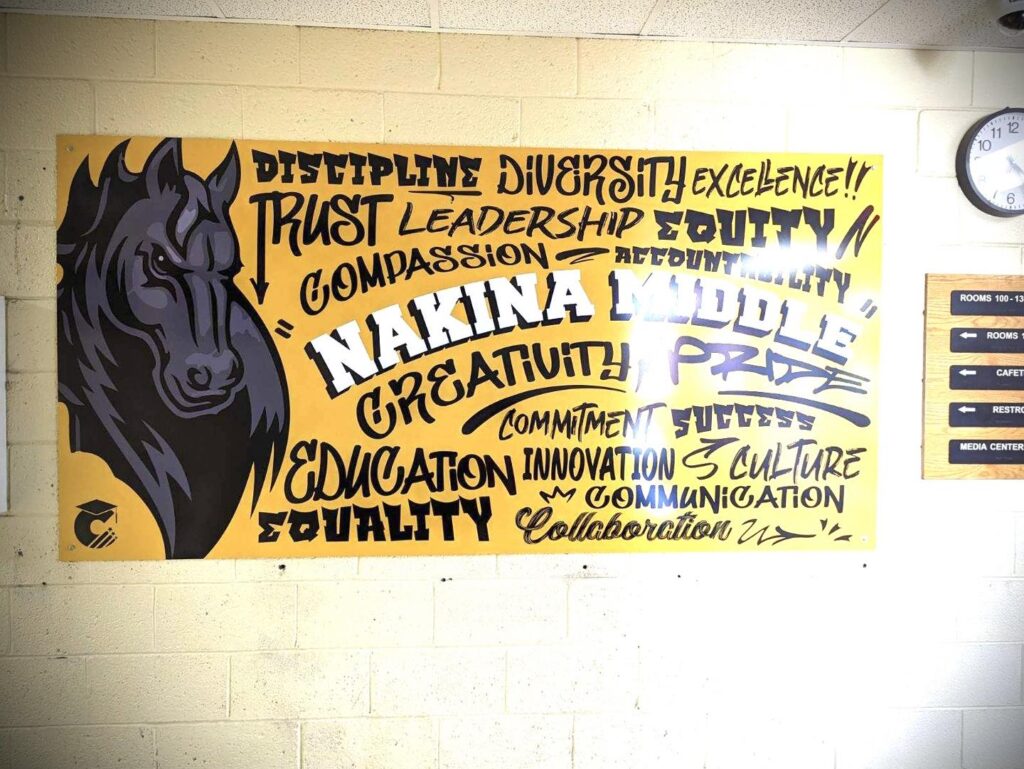 DISCIPLINE DIVERSITY EXCELLENCE!!
TRUST LEADERSHIP EQUITY
COMPASSION ACCOUNTABILITY
"NAKINA MIDDLE"
CREATIVITY, PRIDE
COMMITMENT SUCCESS
EDUCATION INNOVATION CULTURE
EQUALITY COMMUNICATION
Collaboration
11 12
10
6
ROOMS 100-13
ROOMS 1
CAFET
RESTRO
MEDIA CENTER